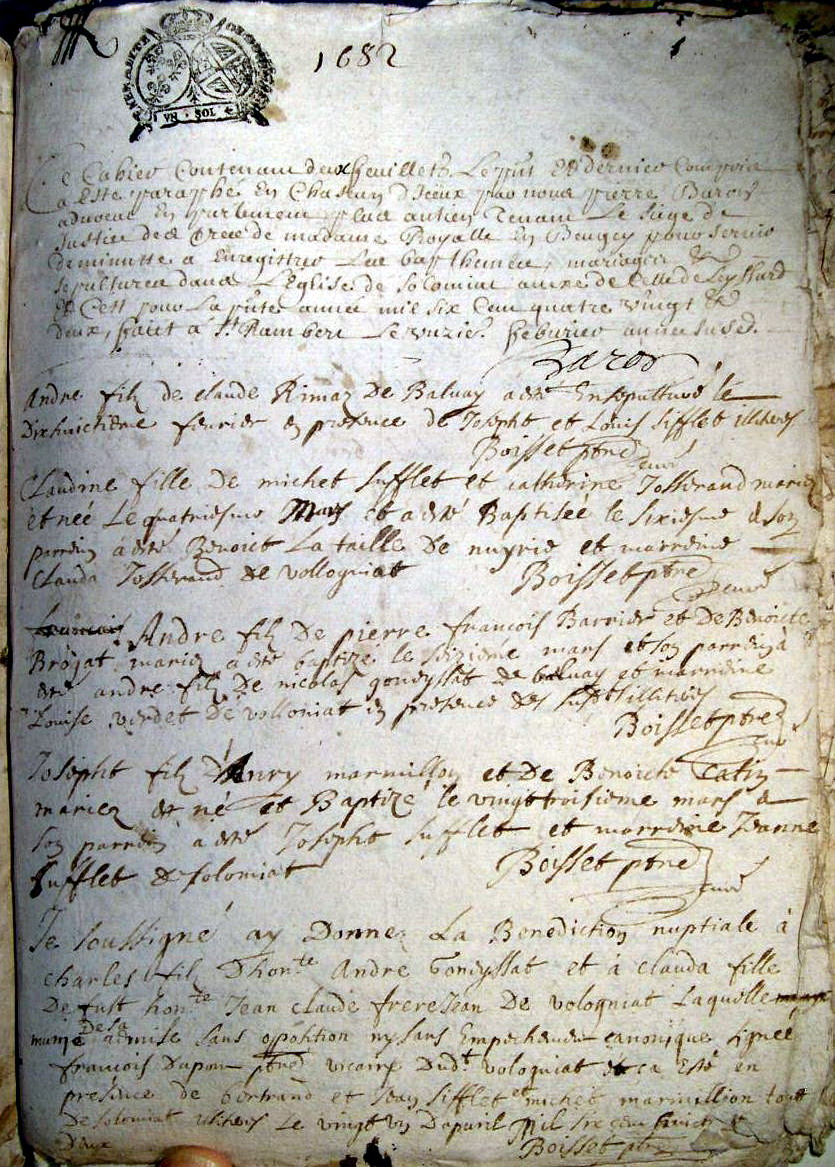 1682
VN SOL
Ce Cahier Contenant deux feuillets Le pnt et dernier Compris
a este paraphe En Chacun d'Iceux par nous pierre Baron
advocat En parlement plus antien Tenant Le siege de
Justice des terres de madame Royalle En Beugey pour servir
de minutte a Enregistrer Les bapthemes, mariages &
sepultures dans L'Eglise de Solomiat annexe de Celle de Leyssard
et Cest pour La pnte année mil six Cent quatre vingt &
deux, faict a St Rambert Le febvrier année susd.
Baron
Andre filz de claude Rimaz De Baluay a esté Ensepulturé le
Dixhuictieme fevrier en presence de Joseph et Louis Sifflet illiteres
Boisset ptre
curé
Claudine fille de michel sufflet et catherine Josserand mariez
et née Le quatriesme Mars et a esté Baptiseé le sixiesme & son
parrein a esté Benoict La taille De nuyrie et marreine
Clauda Josserand de vollogniat Boisset ptre
curé
Andre filz De pierre francois Barrier et De Benoicte
Brojat mariez a esté baptizé le sezieme mars et son parrein a
esté andre filz De nicolas goneyssat de baluay et marreine
Louise verdet De volloniat en presence des susd illiteres
Boisset ptre
curé
Joseph filz d'Anry marmillon et De Benoicte Catin
mariez et né et Baptizé le vingt troisieme mars &
son parrein a esté Joseph sufflet et marreine Jeanne
sufflet de solomiat Boisset ptre
curé
Je soussigné ay Donnez La Benediction nuptiale à
charles filz D'honte Andre Goneyssat et à clauda fille
De fust honte Jean claude frereJean De vologniat Laquelle
munie De sa admise sans oposition ny sans Empechement canonique signeé
francois Dupont ptre vicaire Dudt vologniat et ca Esté en
presence de bertrand et Jean sifflet et michel marmillion tout
De solomiat illiteres Le vingt un D'apvril Mil six cent huict &
Deux Boisset ptre